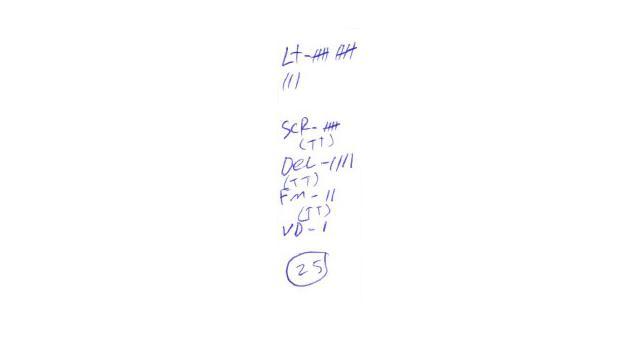 Lt - 𝍸 𝍸
|||
SCR - 𝍸
(TT)
DEL - ||||
(TT)
FM - ||
(JT)
VD - |
25